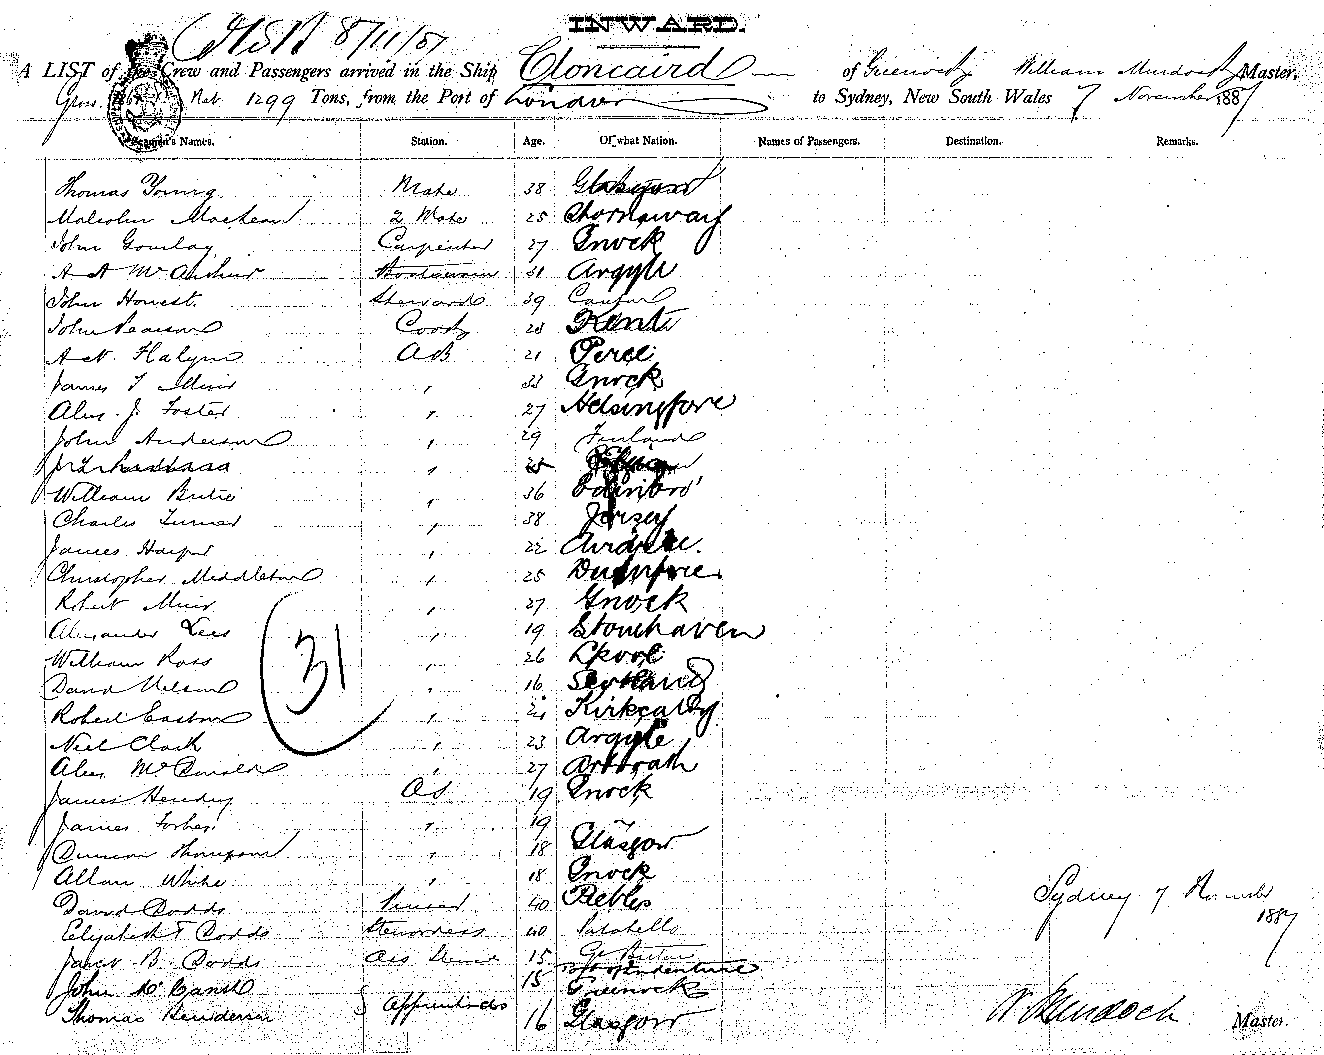 INWARD.
8/11/87
A LIST of the Crew and Passengers arrived in the Ship Cloncaird of Greenock, William Murdoch Master,
Gross. Net 1299 Tons, from the Port of London to Sydney, New South Wales 7 November 1887
Seamen's Names. Station. Age. Of what Nation. Names of Passengers. Destination. Remarks.
Thomas Young Mate 38 Glasgow
Malcolm 2 Mate 25 Stornaway
John Gourlay Carpenter 27 Gnock
A A McArthur Boatswain 31 Argyle
John Honest Steward 39
John Pearson Cook 28 Kent
A N. Halym AB 21 Perce
James T Muir " 33 Gnock
Alex. J. Foster " 27 Helsingfore
John Anderson " 29 Finland
" 25
William " 36 Edinbro'
Charles Turner " 38 Jersey
James Harper " 22 Airdrie.
Christopher Middleton " 25 Dumfries
Robert Muir " 27 Gnock
Alexander Lees " 19 Stonehaven
William Ross " 26 Lpool
David Nelson " 16 Scotland
Robert Easton " 21 Kirkcaldy
Neil Clark " 23 Argyle
Alex McDonald " 27 Arbroath
James Hendry OS 19 Gnock
James Forbes " 19
Duncan Thompson " 18 Glasgow
Allan White " 18 Gnock
David Dodds 40 Peebles
Elizabeth T Dodds Stewardess 40 Portobello
Janet B. Dodds Ass Steward 15 Gt Britain
John McCansh Apprentices 15 Greenock
Thomas Henderson 16 Glasgow
31
Sydney 7 November
1887
W Murdoch Master.